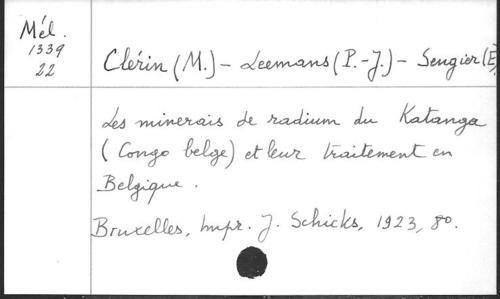 Mél.
1339
22
Clérin (M.) - Leemans (P.-J.) - Sengier (E
Les minerais de radium du Katanga
(Congo belge) et leur traitement en
Belgique.
Bruxelles, Impr. J. Schicks, 1923, 8o.